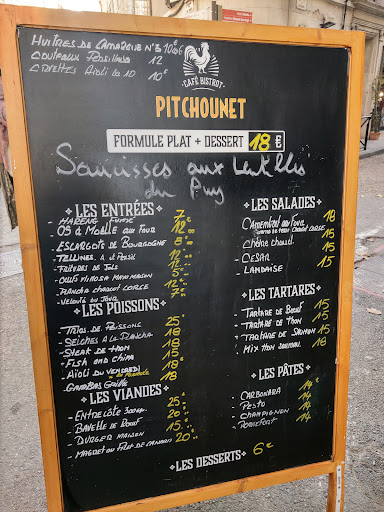 HUITRES DE CAMARGUE N°3 10 00€
COUTEAUX 12
CREVETTES AÏOLI LES 10 10€
CAFÉ BISTROT
PITCHOUNET
FORMULE PLAT + DESSERT 18 €
Saucisses aux Lentilles
du Puy
LES ENTRÉES
- HARENG FUMÉ 7
- OS À MOELLE AU FOUR 12
- ESCARGOTS DE BOURGOGNE
- TELLINES 12
- FRITURES DE JOLS 12
- OEUFS MIMOSA MAYO MAISON 5
- PLANCHA CHARCUT CORSE 12
- VELOUTÉ DU JOUR 7
LES POISSONS
- TRIO DE POISSONS 25
- SEICHES À LA PLANCHA 18
- STEAK DE THON 18
- FISH AND CHIPS 15
- AÏOLI DU VENDREDI 18
- GAMBAS GRILLÉ 18
LES VIANDES
- ENTRECÔTE 300gr 25
- BAVETTE DE BOEUF 20
- BURGER MAISON 15
- MAGRET OU FILET DE CANARD 20
LES SALADES
- CAMEMBERT AU FOUR 18
- CHÈVRE CHAUD 15
- CESAR 15
- LANDAISE 15
LES TARTARES
- TARTARE DE BOEUF 15
- TARTARE DE THON 15
- TARTARE DE SAUMON 15
- MIX THON SAUMON 18
LES PÂTES
- CARBONARA 14
- PESTO 14
- CHAMPIGNON 14
- ROQUEFORT 14
LES DESSERTS 6€